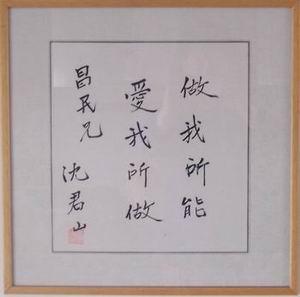 做我所能
愛我所做
昌民兄
沈君山